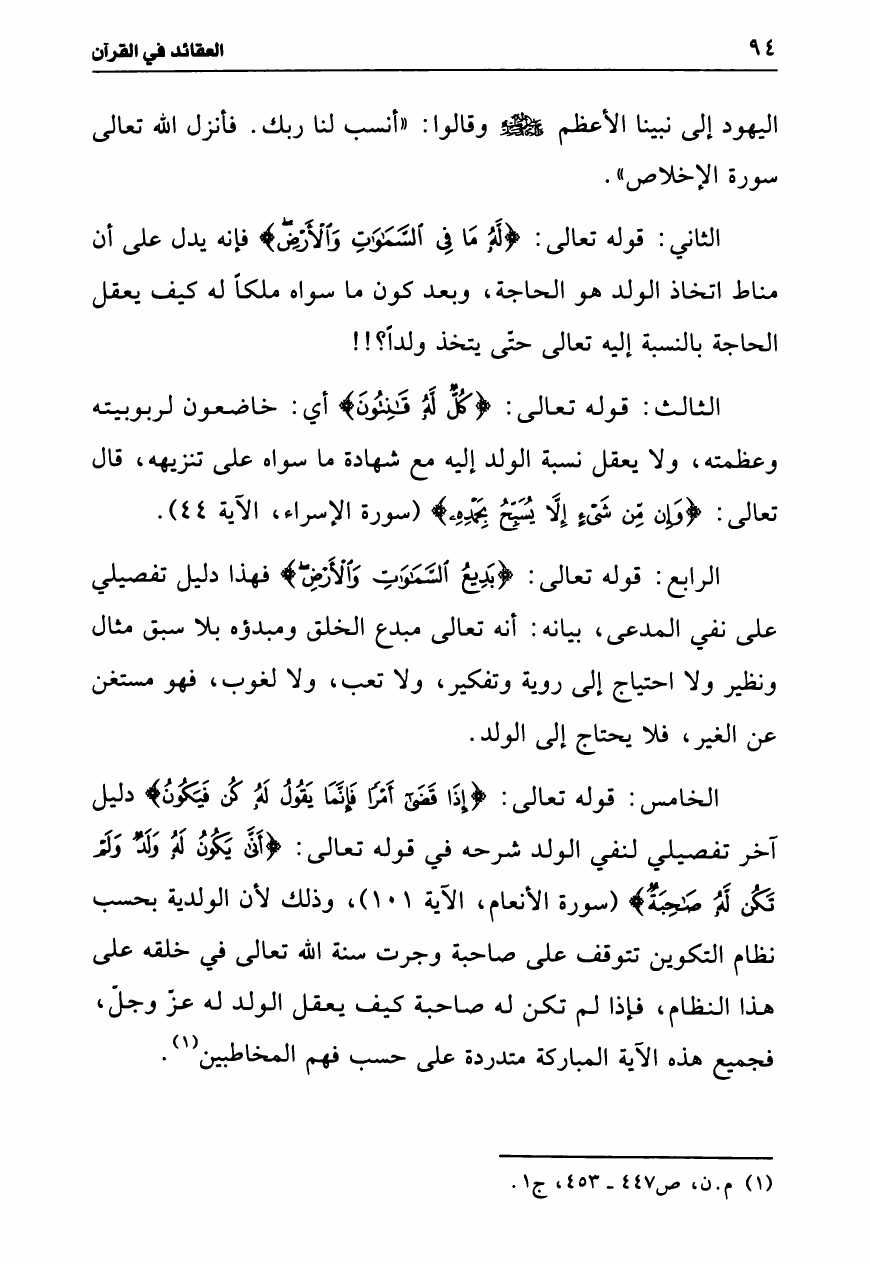 ٩٤
العقائد في القرآن
اليهود إلى نبينا الأعظم ﷺ وقالوا: «أنسب لنا ربك. فأنزل الله تعالى
سورة الإخلاص».
الثاني: قوله تعالى: ﴿لَهُ مَا فِي ٱلسَّمَٰوَٰتِ وَٱلْأَرْضِۖ﴾ فإنه يدل على أن
مناط اتخاذ الولد هو الحاجة، وبعد كون ما سواه ملكاً له كيف يعقل
الحاجة بالنسبة إليه تعالى حتّى يتخذ ولداً؟!!
الثالث: قوله تعالى: ﴿كُلٌّ لَّهُۥ قَٰنِتُونَ﴾ أي: خاضعون لربوبيته
وعظمته، ولا يعقل نسبة الولد إليه مع شهادة ما سواه على تنزيهه، قال
تعالى: ﴿وَإِن مِّن شَىْءٍ إِلَّا يُسَبِّحُ بِحَمْدِهِۦ﴾ (سورة الإسراء، الآية ٤٤).
الرابع: قوله تعالى: ﴿بَدِيعُ ٱلسَّمَٰوَٰتِ وَٱلْأَرْضِۖ﴾ فهذا دليل تفصيلي
على نفي المدعى، بيانه: أنه تعالى مبدع الخلق ومبدؤه بلا سبق مثال
ونظير ولا احتياج إلى روية وتفكير، ولا تعب، ولا لغوب، فهو مستغن
عن الغير، فلا يحتاج إلى الولد.
الخامس: قوله تعالى: ﴿إِذَا قَضَىٰٓ أَمْرًا فَإِنَّمَا يَقُولُ لَهُۥ كُن فَيَكُونُ﴾ دليل
آخر تفصيلي لنفي الولد شرحه في قوله تعالى: ﴿أَنَّىٰ يَكُونُ لَهُۥ وَلَدٌ وَلَمْ
تَكُن لَّهُۥ صَٰحِبَةٌۖ﴾ (سورة الأنعام، الآية ١٠١)، وذلك لأن الولدية بحسب
نظام التكوين تتوقف على صاحبة وجرت سنة الله تعالى في خلقه على
هذا النظام، فإذا لم تكن له صاحبة كيف يعقل الولد له عزّ وجلّ،
فجميع هذه الآية المباركة متدردة على حسب فهم المخاطبين(١).
(١) م.ن، ص٤٤٧ ـ ٤٥٣، ج١.